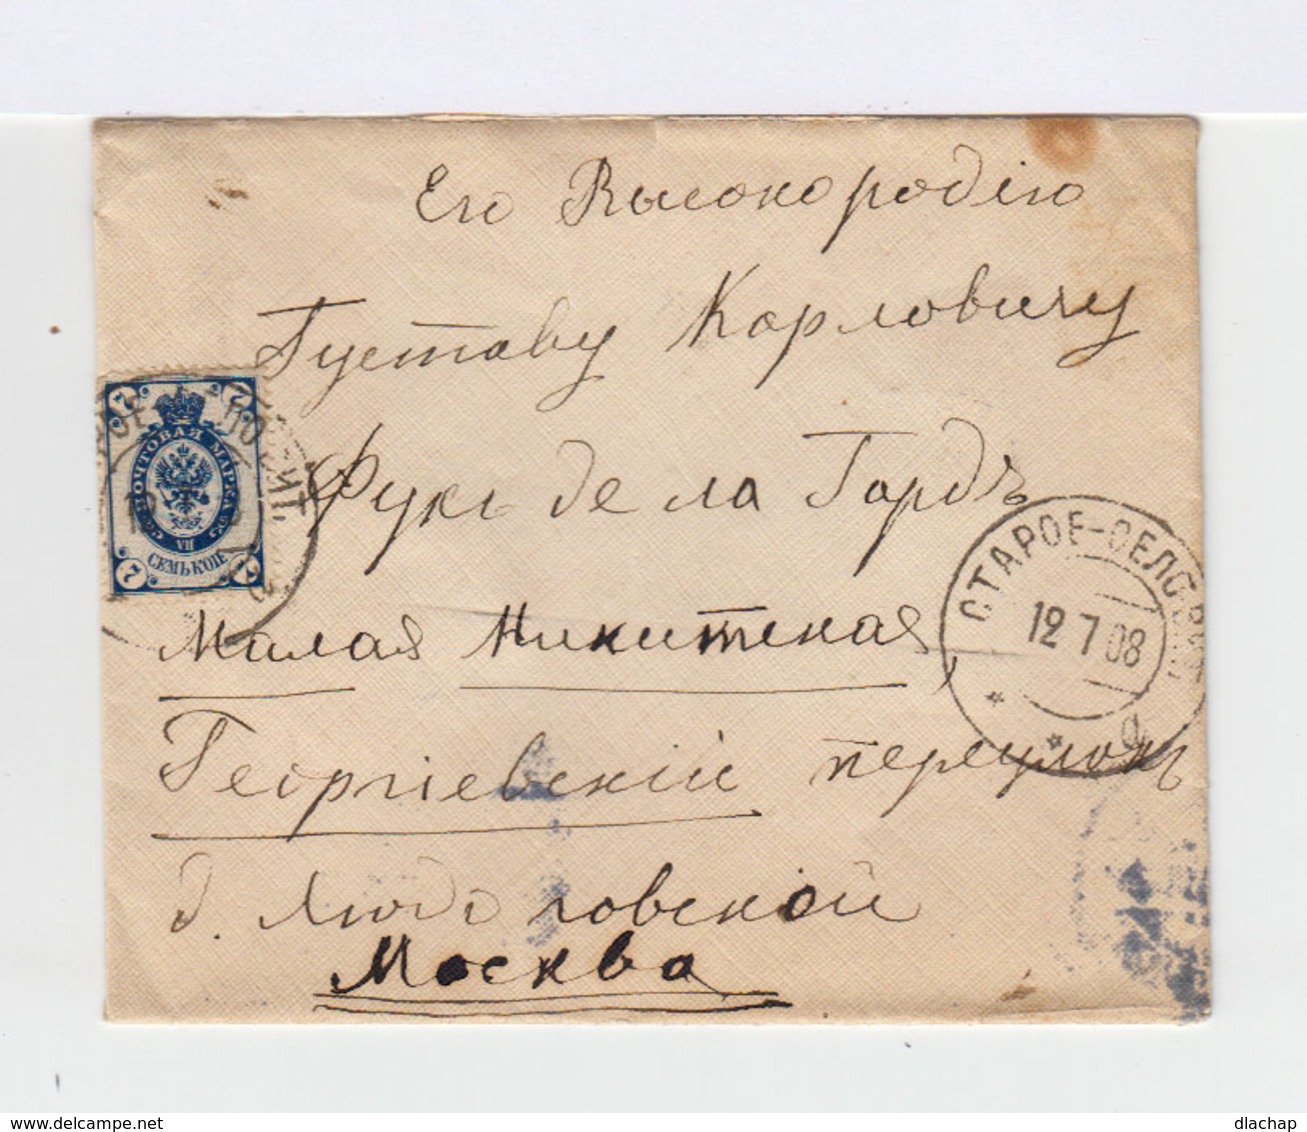 Его Высокородію
Густаву Карловичу
Фуксъ де ла Гардъ
Малая Никитская,
Георгіевскій переулокъ
д. Людоговской
Москва
ПОЧТОВАЯ МАРКА
7 7
VII
СЕМЬ КОП.
7 7
СТАРОЕ-СЕЛО
12 7 08
а
delcampe.net
dlachap